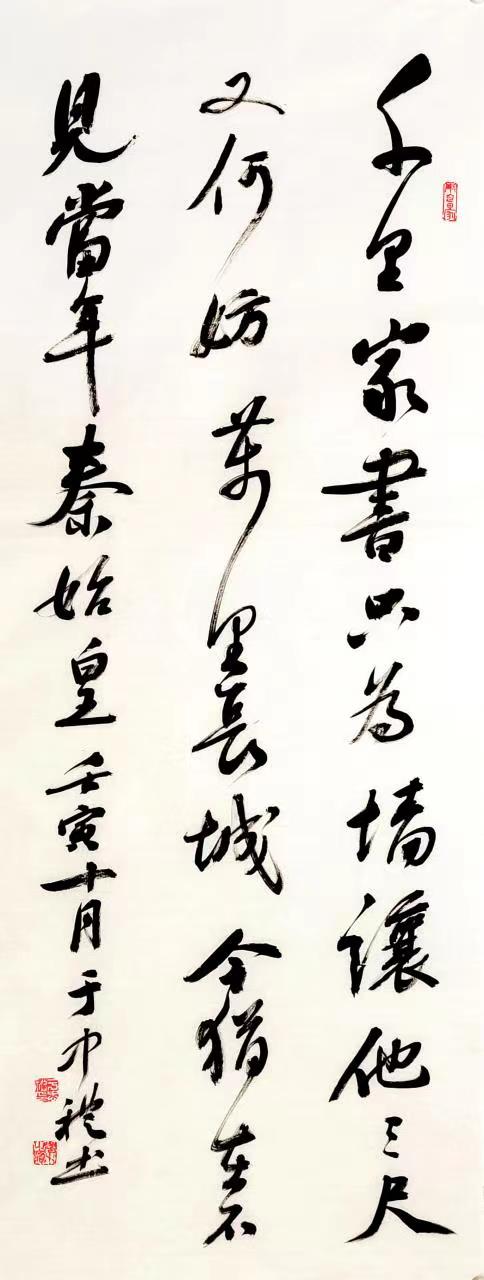 千里家書只為墻讓他三尺
又何妨萬里長城今猶在不
見當年秦始皇壬寅十月于中禮书